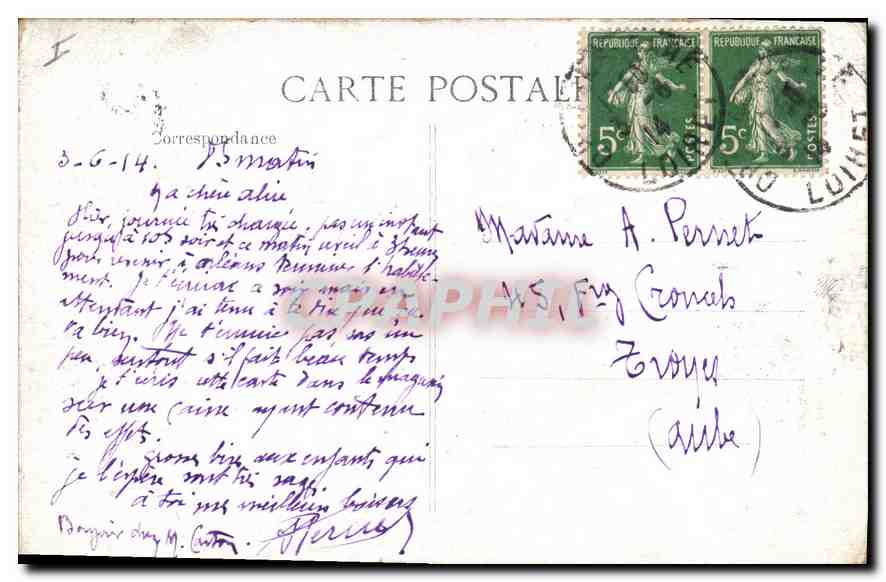 I
CARTE POSTALE
Correspondance
3-6-14. matin
Ma chère alice
Hier, journée très chargée, pas un instant
jusqu'à 10h soir et ce matin réveil à 3 heures
pour revenir à Orléans terminer l'habille-
ment. Je t'écrirai ce soir mais en
attendant j'ai tenu à te dire que
va bien. Ne t'ennuie pas sors un
peu surtout s'il fait beau temps
je t'écris cette carte dans le magasin
sur une caisse ayant contenu
des effets.
grosses bises aux enfants qui
je l'espère sont très sages
à toi mes meilleurs baisers
Bonjour chez M.
Pernet
REPUBLIQUE FRANÇAISE
5c
POSTES
REPUBLIQUE FRANÇAISE
5c
POSTES
14
LOIRET
LOIRET
Madame A. Pernet
45, Fbg Croncels
Troyes
(Aube)
CPAPHIL